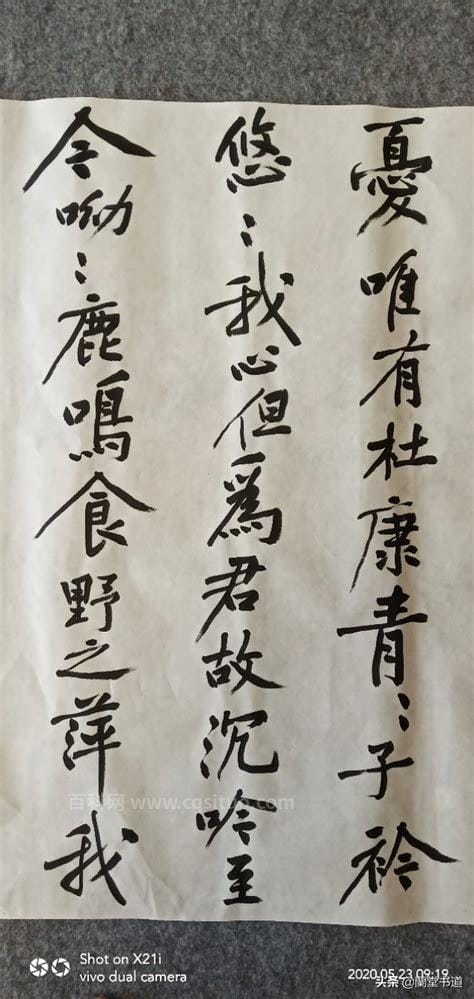 憂唯有杜康青〻子衿
悠〻我心但爲君故沉吟至
今呦〻鹿鳴食野之萍我
百科网 www.cqsituo.com
Shot on X21i
vivo dual camera
2020.05.23 09:19
头条 @蘭堂书道